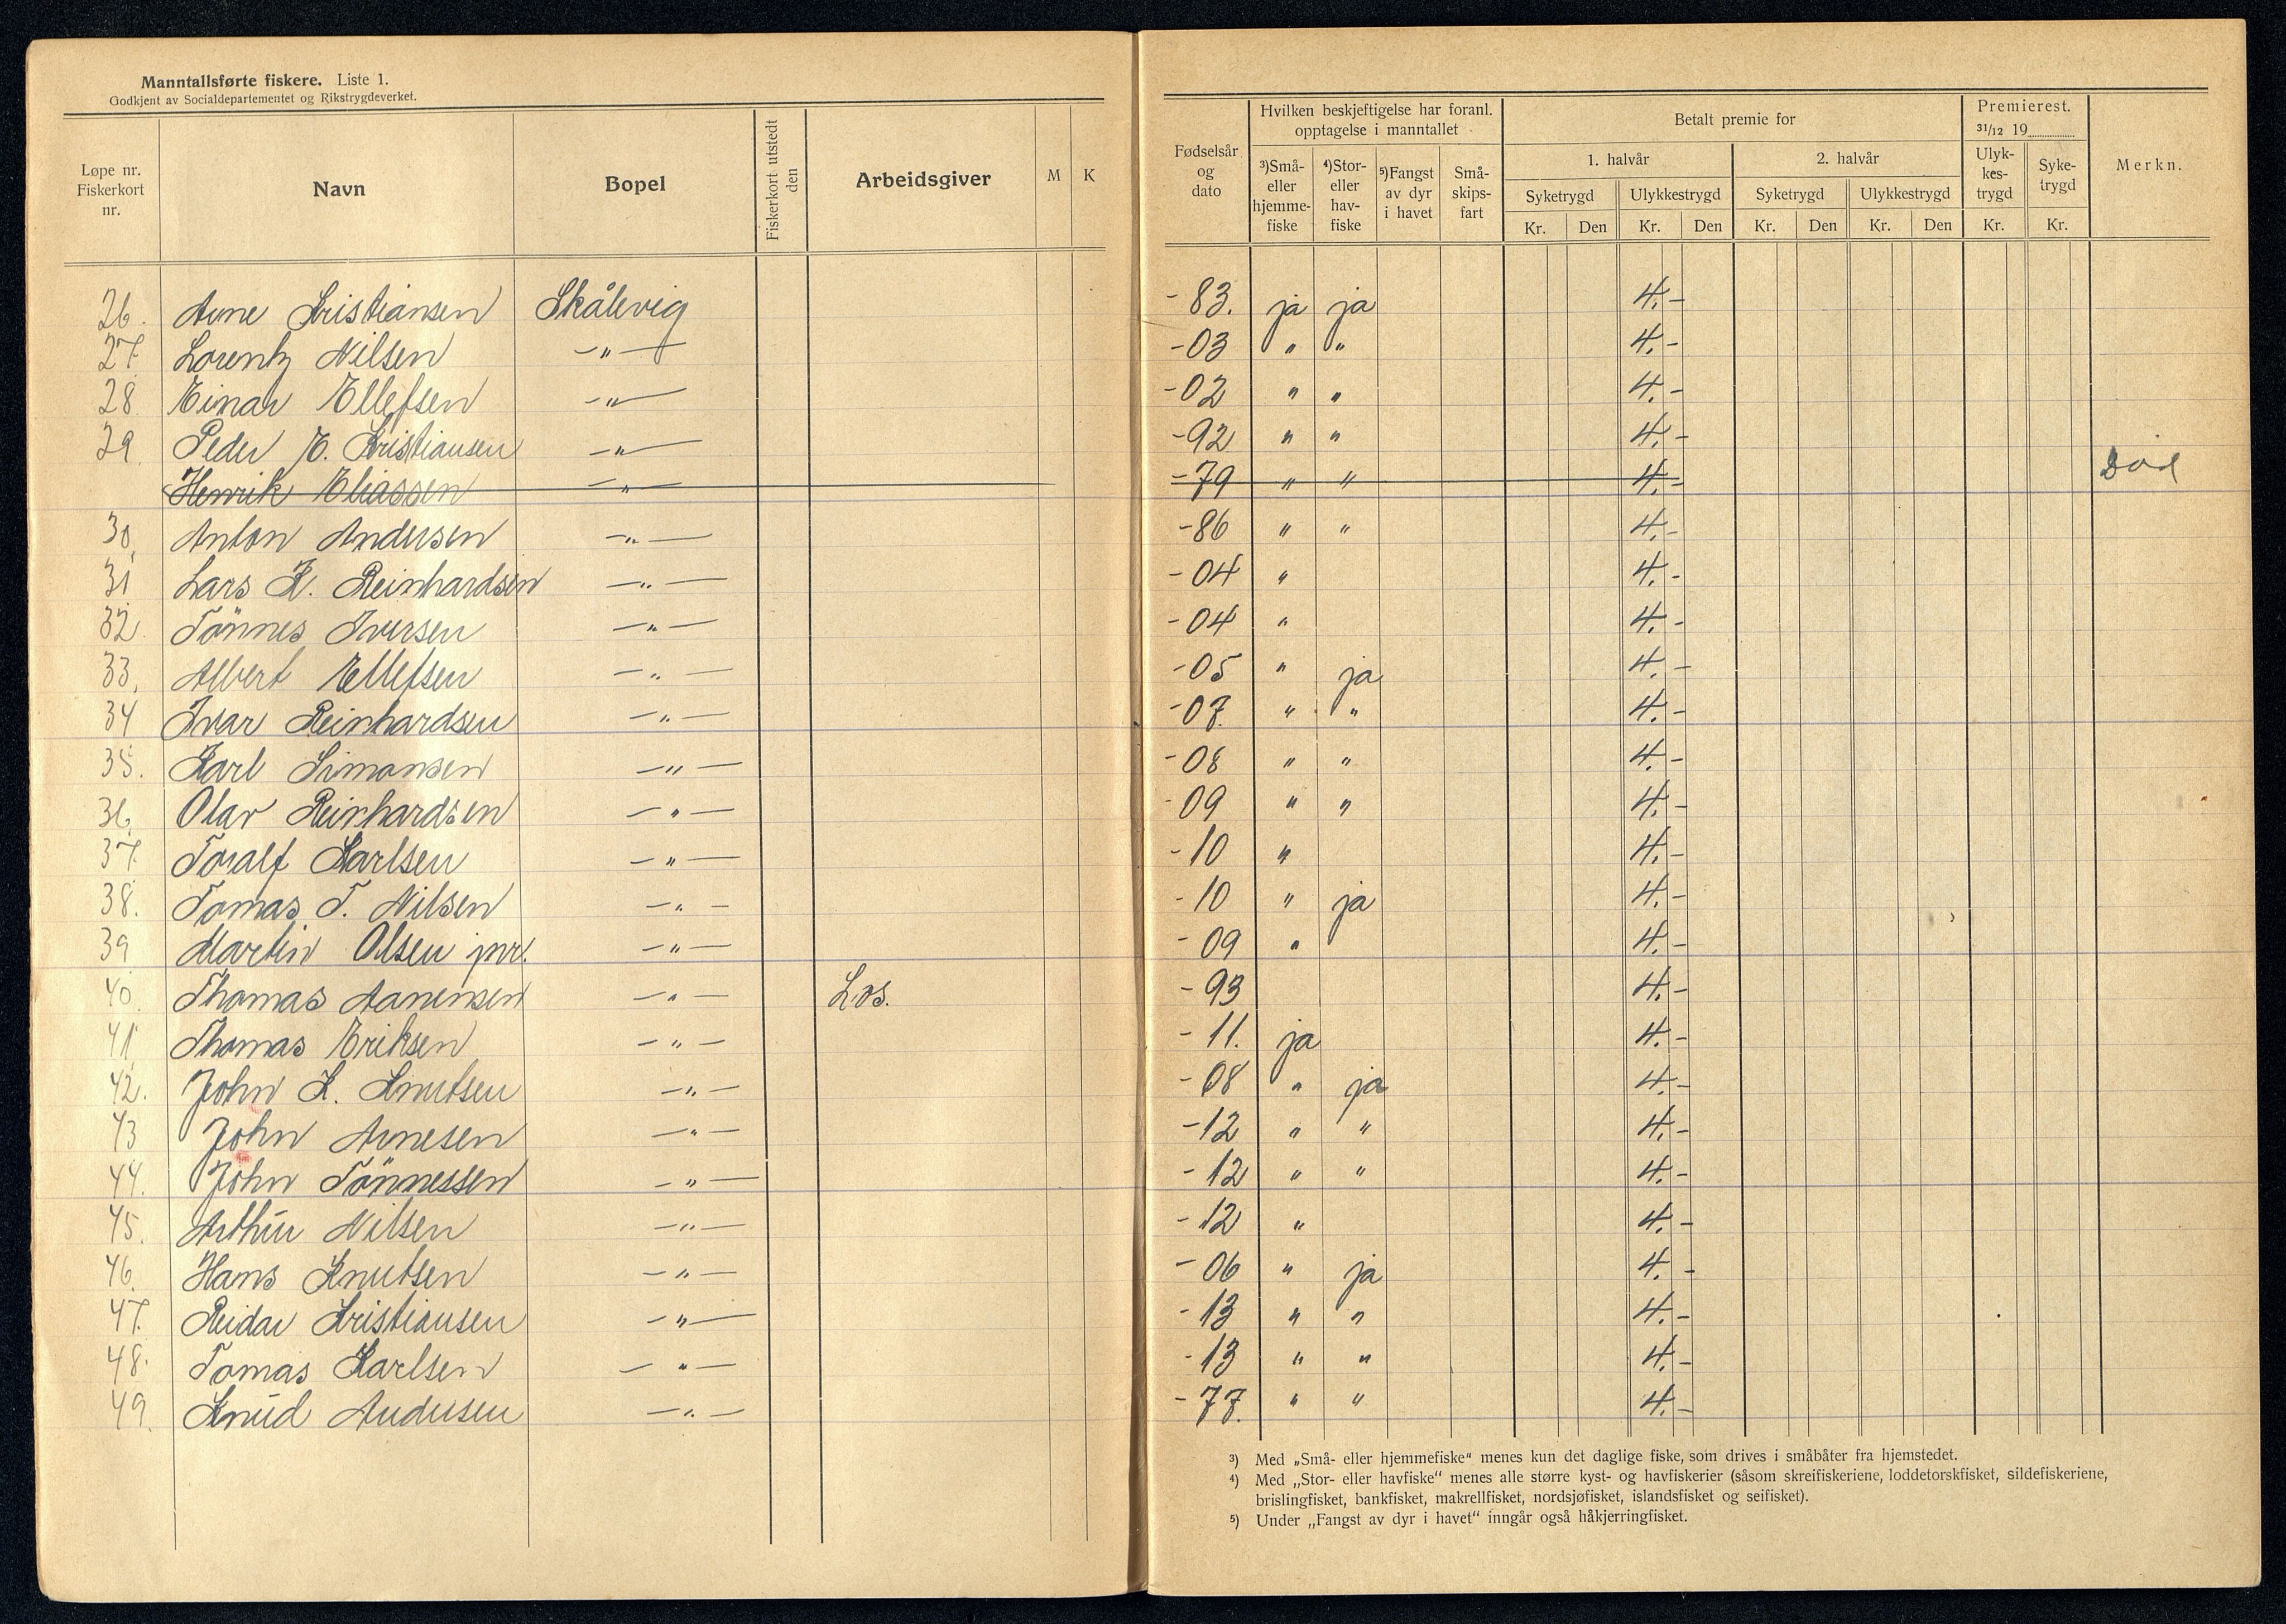 Manntallsførte fiskere. Liste 1.
Godkjent av Socialdepartementet og Rikstrygdeverket.
Løpe nr. Fiskerkort nr. Navn Bopel Fiskerkort utstedt den Arbeidsgiver M K Fødselsår og dato Hvilken beskjeftigelse har foranl. opptagelse i manntallet ³)Små- eller hjemme- fiske ⁴)Stor- eller hav- fiske ⁵)Fangst av dyr i havet Små- skips- fart Betalt premie for 1. halvår Syketrygd Kr. Den Ulykkestrygd Kr. Den 2. halvår Syketrygd Kr. Den Ulykkestrygd Kr. Den Premierest. 31/12 19 Ulyk- kes- trygd Kr. Syke- trygd Kr. Merkn.
26. Arne Kristiansen Skålevig -83. ja ja 4.-
27. Lorentz Nilsen -„- -03 „ „ 4.-
28. Einar Ellefsen -„- -02 „ „ 4.-
29. Peder E. Kristiansen -„- -92 „ „ 4.-
Henrik Eliassen -„- -79 „ „ 4.- Død
30. Anton Andersen -„- -86 „ „ 4.-
31 Lars K. Reinhardsen -„- -04 „ 4.-
32. Tönnes Iversen -„- -04 „ 4.-
33. Albert Ellefsen -„- -05 „ ja 4.-
34 Ivar Reinhardsen -„- -07. „ „ 4.-
35. Karl Simonsen -„- -08 „ „ 4.-
36. Olav Reinhardsen -„- -09 „ „ 4.-
37. Toralf Karlsen -„- -10 „ 4.-
38. Tomas T. Nilsen -„- -10 „ ja 4.-
39 Martin Olsen jnr. -„- -09 „ 4.-
40. Thomas Aanensen -„- Los. -93 4.-
41 Thomas Eriksen -„- -11. ja 4.-
42. John K. Knutsen -„- -08 „ ja 4.-
43 John Arnesen -„- -12 „ „ 4.-
44. John Tönnessen -„- -12 „ „ 4.-
45. Arthur Nilsen -„- -12 „ 4.-
46. Hans Knutsen -„- -06 „ ja 4.-
47. Reidar Kristiansen -„- -13 „ „ 4.-
48. Tomas Karlsen -„- -13 „ „ 4.-
49. Knud Andersen -„- -77. „ „ 4.-
³) Med „Små- eller hjemmefiske“ menes kun det daglige fiske, som drives i småbåter fra hjemstedet.
⁴) Med „Stor- eller havfiske“ menes alle større kyst- og havfiskerier (såsom skreifiskeriene, loddetorskfisket, sildefiskeriene,
brislingfisket, bankfisket, makrellfisket, nordsjøfisket, islandsfisket og seifisket).
⁵) Under „Fangst av dyr i havet“ inngår også håkjerringfisket.